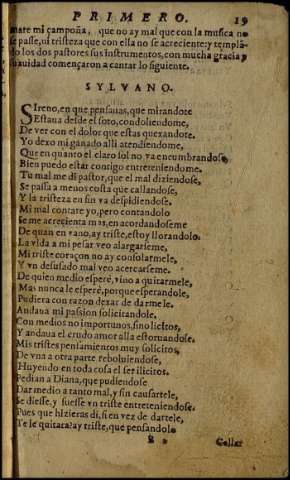 PRIMERO. 19
mare mi çampoña, que no ay mal que con la musica no
se passe, ni tristeza que con ella no se acreciente: y templã
do los dos pastores sus instrumentos, con mucha gracia y
suauidad començaron a cantar lo siguiente.
SYLVANO.
SIreno, en que pensauas, que mirandote
Estaua desde el soto, condoliendome,
De ver con el dolor que estas quexandote.
Yo dexo mi ganado alli atendiendome,
Que en quanto el claro sol no va encumbrandose,
Bien puedo estar contigo entreteniendome.
Tu mal me di pastor, que el mal diziendose,
Se passa a menos costa que callandose,
Y la tristeza en fin va despidiendose.
Mi mal contarè yo, pero contandolo
Se me acrecienta mas, en acordandoseme
De quan en vano, ay triste, estoy llorandolo.
La vida a mi pesar veo alargarseme,
Mi triste coraçon no ay consolarmele,
Y vn desusado mal veo acercarseme.
De quien medio esperè, vino a quitarmele,
Mas nunca le esperè, porque esperandole,
Pudiera con razon dexar de darmele.
Andaua mi passion solicitandole,
Con medios no importunos, sino licitos,
Y andaua el crudo amor alla estoruandole.
Mis tristes pensamientos muy solicitos,
De vna a otra parte reboluiendose,
Huyendo en toda cosa el ser ilicitos.
Pedian a Diana, que pudiendose
Dar medio a tanto mal, y sin causartele,
Se diesse, y fuesse vn triste entreteniendose.
Pues que hizieras di, si en vez de dartele,
Te le quitara? ay triste, que pensandolo
Callar